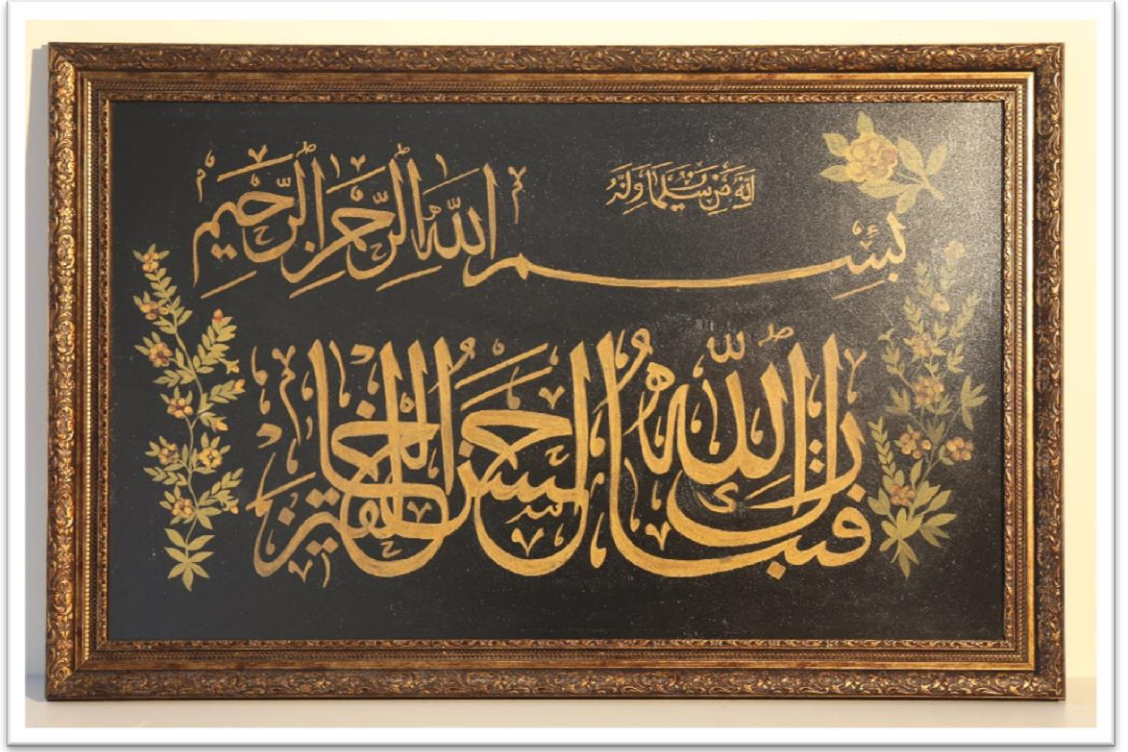 انه من سليمان وانه
بسم الله الرحمن الرحيم
فتبارك الله احسن الخالقين